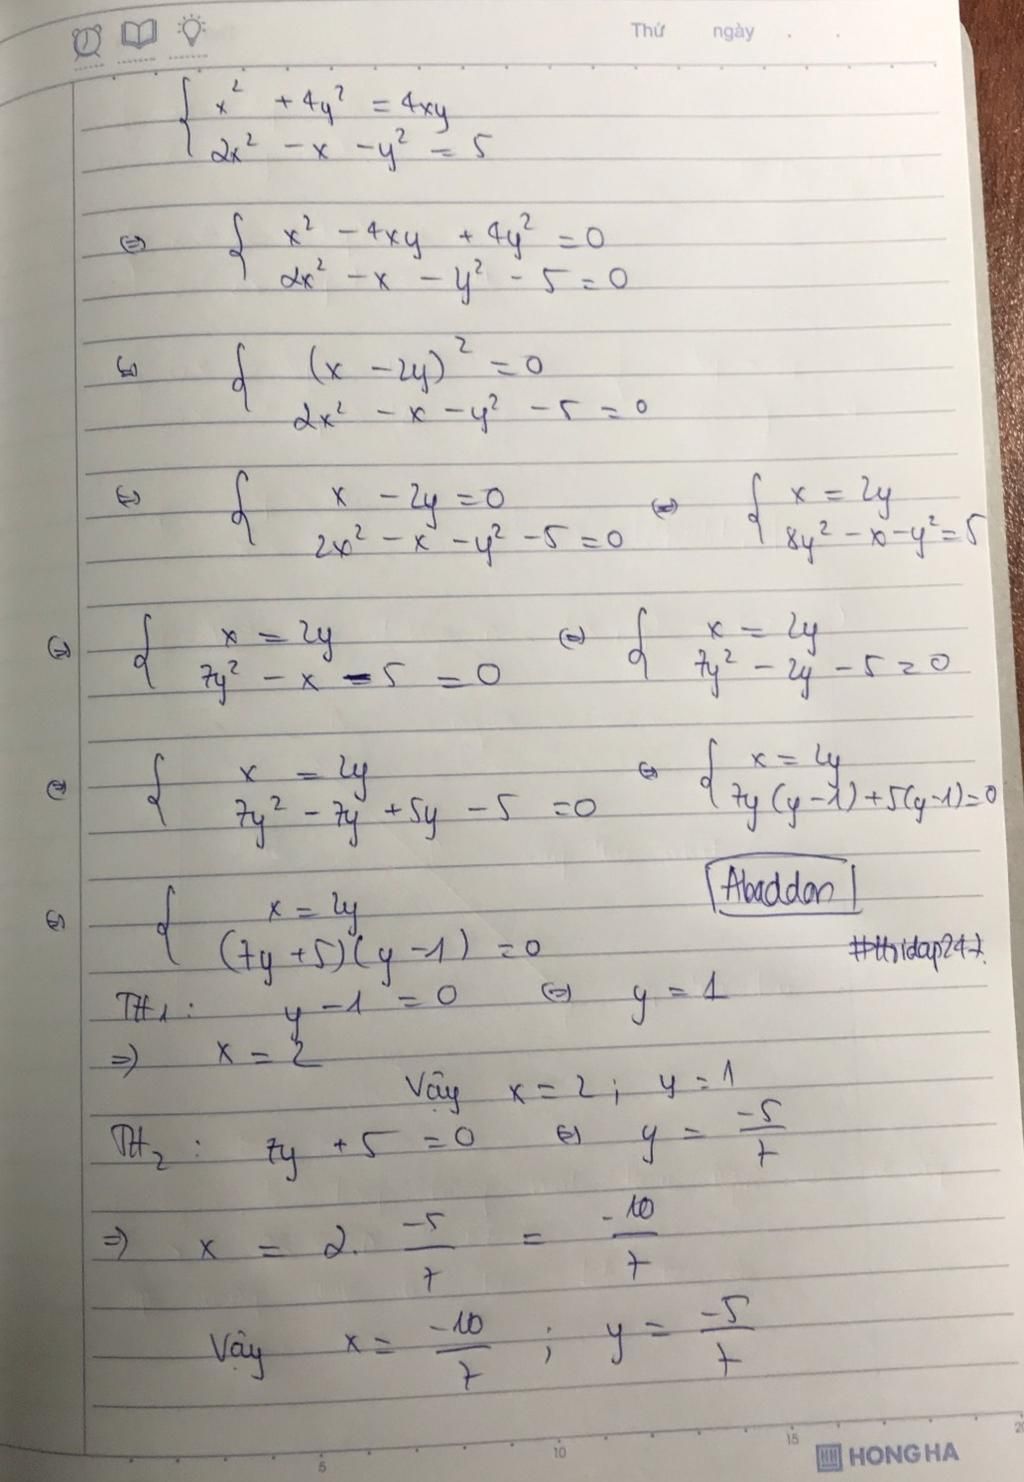 Thứ ngày . .
{ x² + 4y² = 4xy
2x² - x - y² = 5
⇔ { x² - 4xy + 4y² = 0
2x² - x - y² - 5 = 0
⇔ { (x - 2y)² = 0
2x² - x - y² - 5 = 0
⇔ { x - 2y = 0 ⇔ { x = 2y
2x² - x - y² - 5 = 0 8y² - x - y² = 5
⇔ { x = 2y ⇔ { x = 2y
7y² - x - 5 = 0 7y² - 2y - 5 = 0
⇔ { x = 2y ⇔ { x = 2y
7y² - 7y + 5y - 5 = 0 7y(y - 1) + 5(y - 1) = 0
Abaddon
⇔ { x = 2y
(7y + 5)(y - 1) = 0
TH1 : y - 1 = 0 ⇔ y = 1
⇒ x = 2
Vậy x = 2 ; y = 1
TH2 : 7y + 5 = 0 ⇔ y = -5/7
⇒ x = 2. -5/7 = -10/7
Vậy x = -10/7 ; y = -5/7
5 10 15
HONG HA